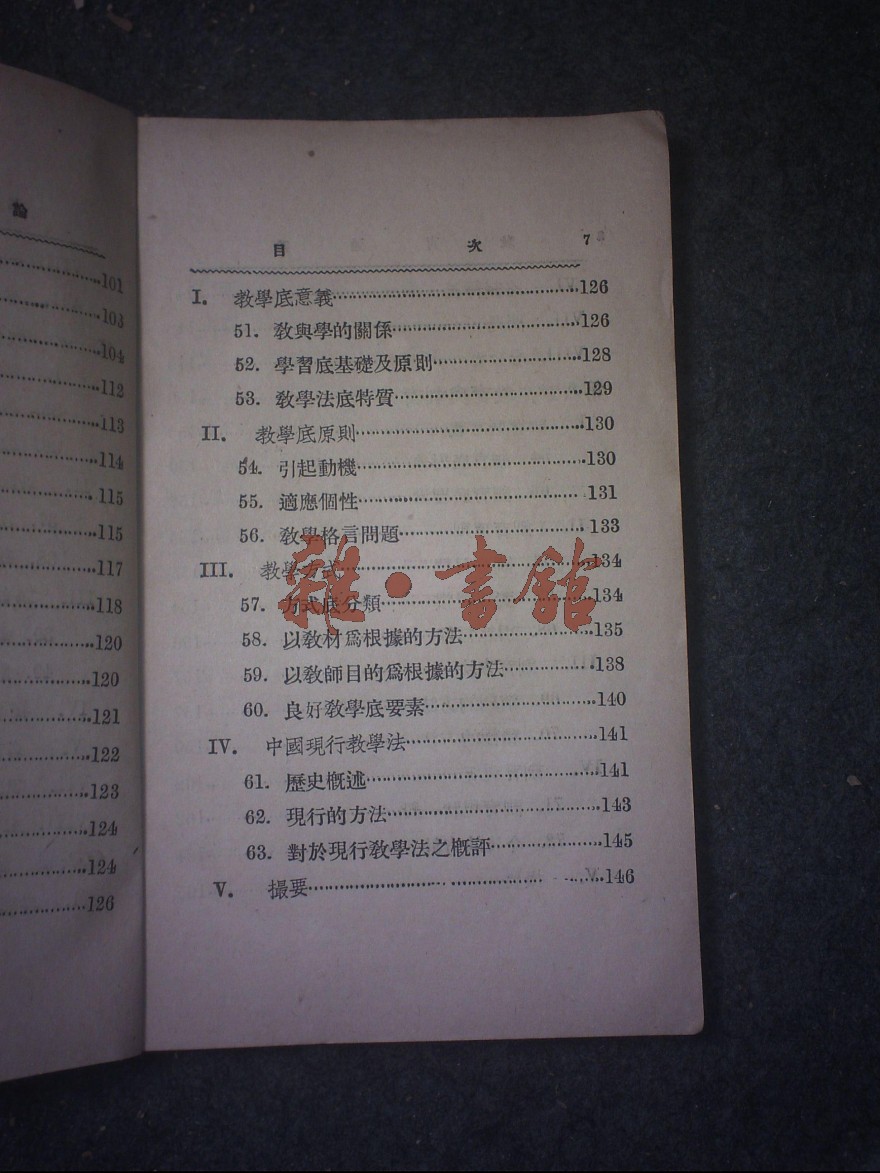 論
101
103
104
112
113
114
115
115
117
118
120
120
121
122
123
124
124
126
目 次 7
I. 教學底意義 126
51. 教與學的關係 126
52. 學習底基礎及原則 128
53. 教學法底特質 129
II. 教學底原則 130
54. 引起動機 130
55. 適應個性 131
56. 教學格言問題 133
III. 教學方式 134
57. 方式底分類 134
58. 以教材爲根據的方法 135
59. 以教師目的爲根據的方法 138
60. 良好教學底要素 140
IV. 中國現行教學法 141
61. 歷史概述 141
62. 現行的方法 143
63. 對於現行教學法之概評 145
V. 撮要 146
雜·書館